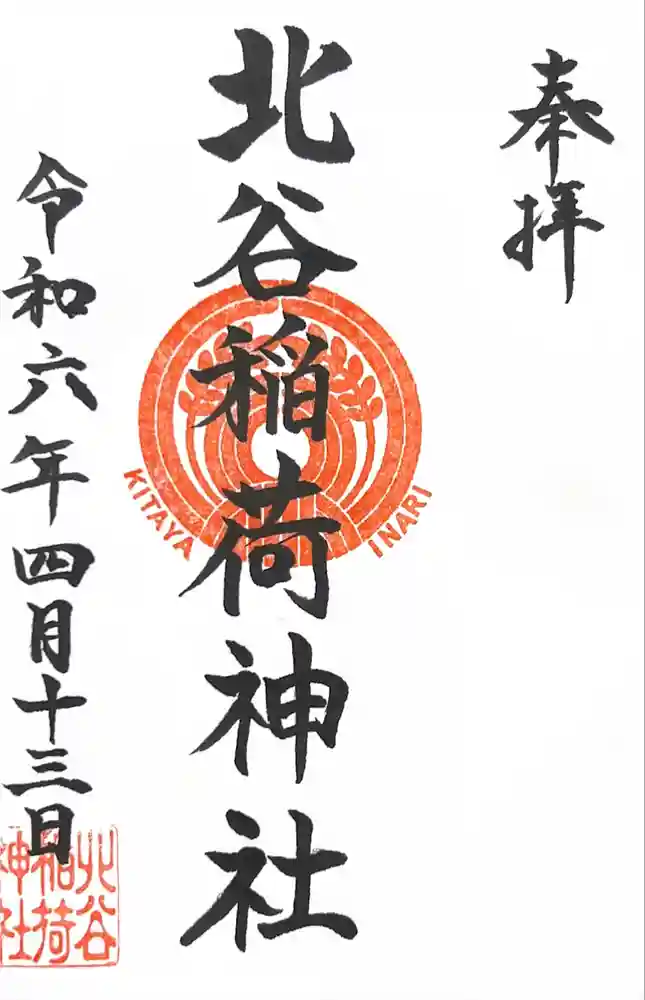 奉拝
北谷稲荷神社
KITAYA INARI
令和六年四月十三日
北谷
稲荷
神社